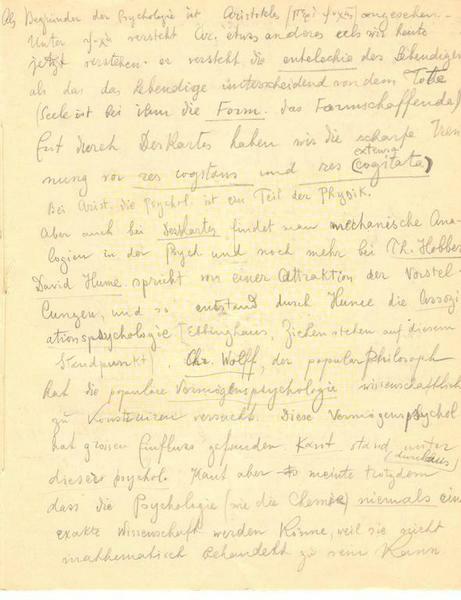 Als Begründer der Psychologie ist Aristoteles (περὶ ψυχῆς) angesehen.
Unter ψυχὴ versteht Ar. etwas anderes als wir heute
jetzt verstehen. er versteht die entelechie des Lebendigen
als das das Lebendige unterscheidend von dem Tote
(Seele ist bei ihm die Form. das Formschaffende)
Erst durch Deskartes haben wir die scharfe Tren
nung von res cogitans und res extensa (cogitata)
Bei Arist. die Psychol. ist ein Teil der Physik.
Aber auch bei Deskartes findet man mechanische Ana-
logien in der Psych. und noch mehr bei Th. Hobbes
David Hume spricht von einer Attraktion der Vorstel-
lungen, und so entstand durch Hume die Assozi
ationspsychologie [Ebbinghaus, Ziehen stehen auf diesem
Standpunkt]. Chr. Wolff, der popular Philosoph
hat die populäre Vermögenspsychologie wissenschaftlich
zu konstruiren versucht. Diese Vermögenspsychol
hat grossen Einfluss gefunden. Kant stand unter
dieser psychol. (durchaus) Kant aber meinte trotzdem
dass die Psychologie (wie die Chemie) niemals ein
exakte Wissenschaft werden könne, weil sie nicht
mathematisch behandelt zu sein kann